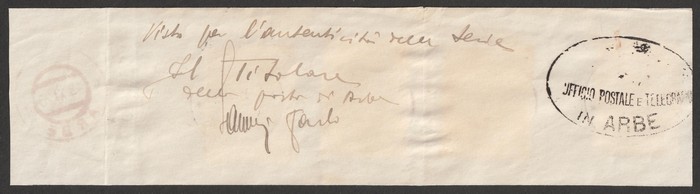 Visto per l'autenticità della serie
Il Titolare
della posta di Arbe
UFFICIO POSTALE E TELEGRAFICO
IN ARBE